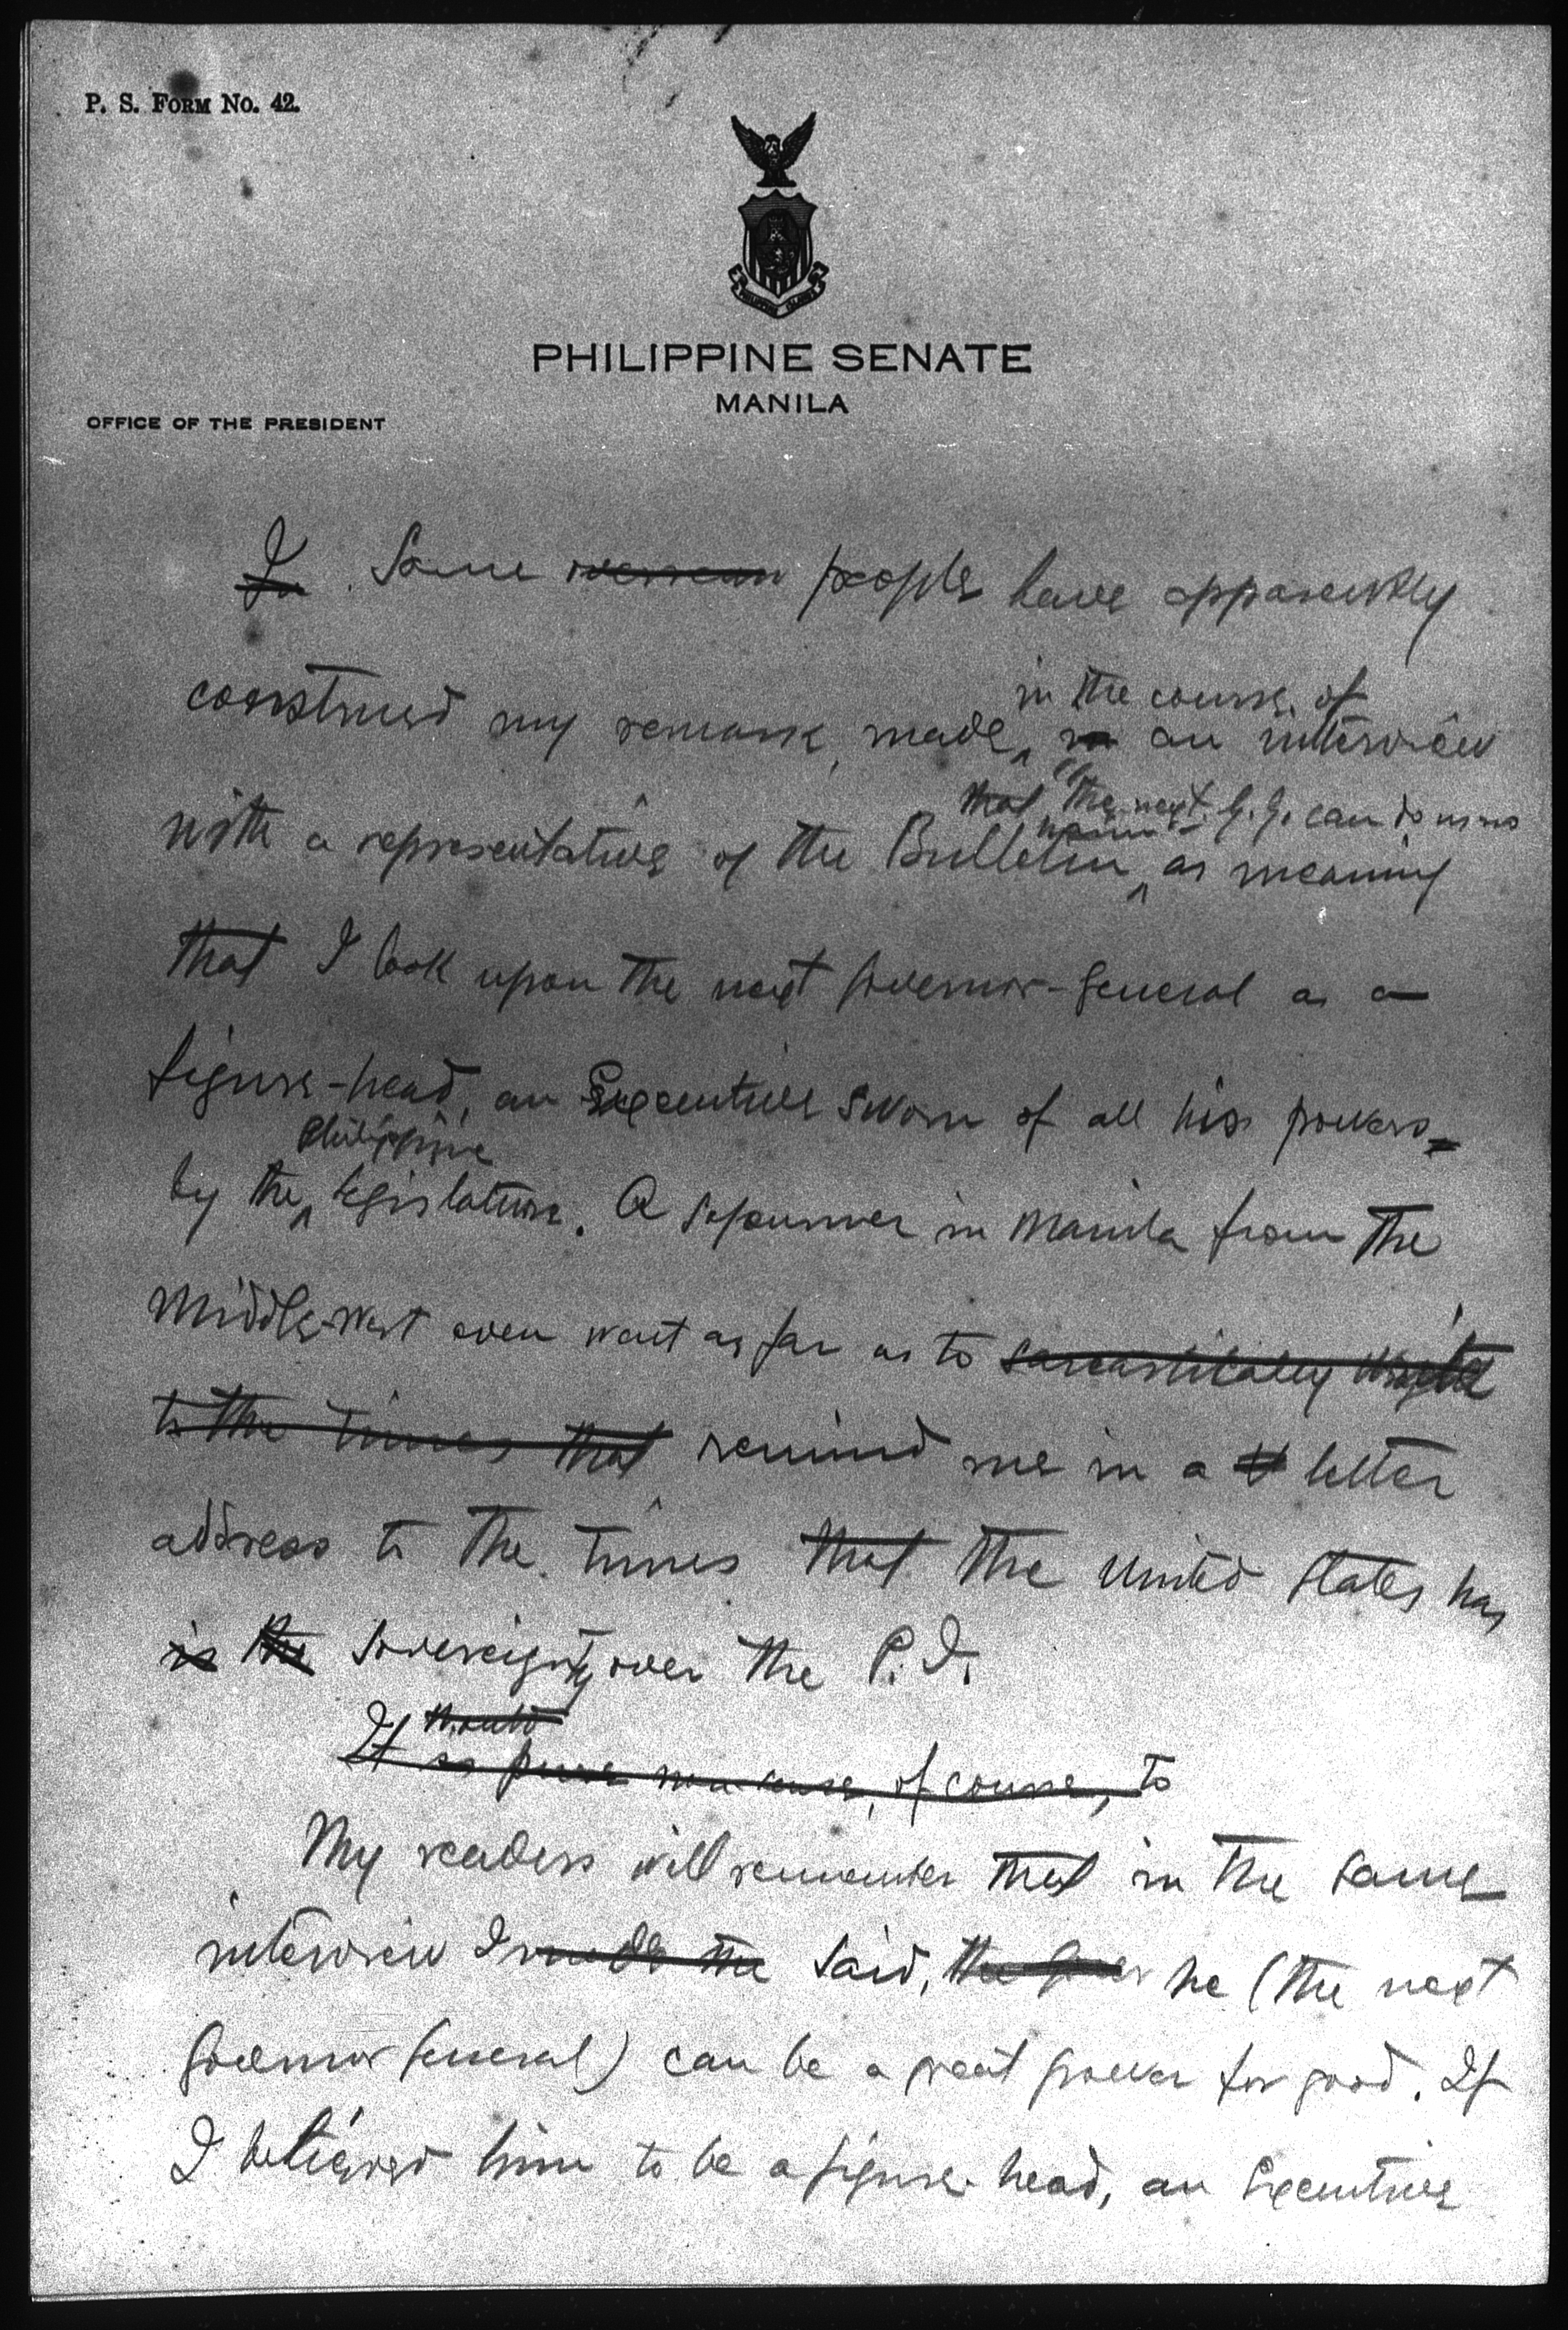 P. S. FORM NO. 42.
PHILIPPINE ISLANDS
PHILIPPINE SENATE
MANILA
OFFICE OF THE PRESIDENT
In. Some people have apparently
in the course of
construed my remark, made, in an interview
that "the next G. G. can do us no
with a representative of the Bulletin, as meaning
that I look upon the next Governor-General as a
figure-head, an Executive sworn of all his powers
Philippine
by the legislature. A sojourner in Manila from the
Middle-West even went as far as to sarcastically
to the Times that remind me in a letter
address to the Times that the United States has
is the sovereignty over the P. I.
would
It is pure nonsense, of course, to
My readers will remember that in the same
interview I made the said, the he (the next
Governor General) can be a great power for good. If
I believed him to be a figure-head, an Executive